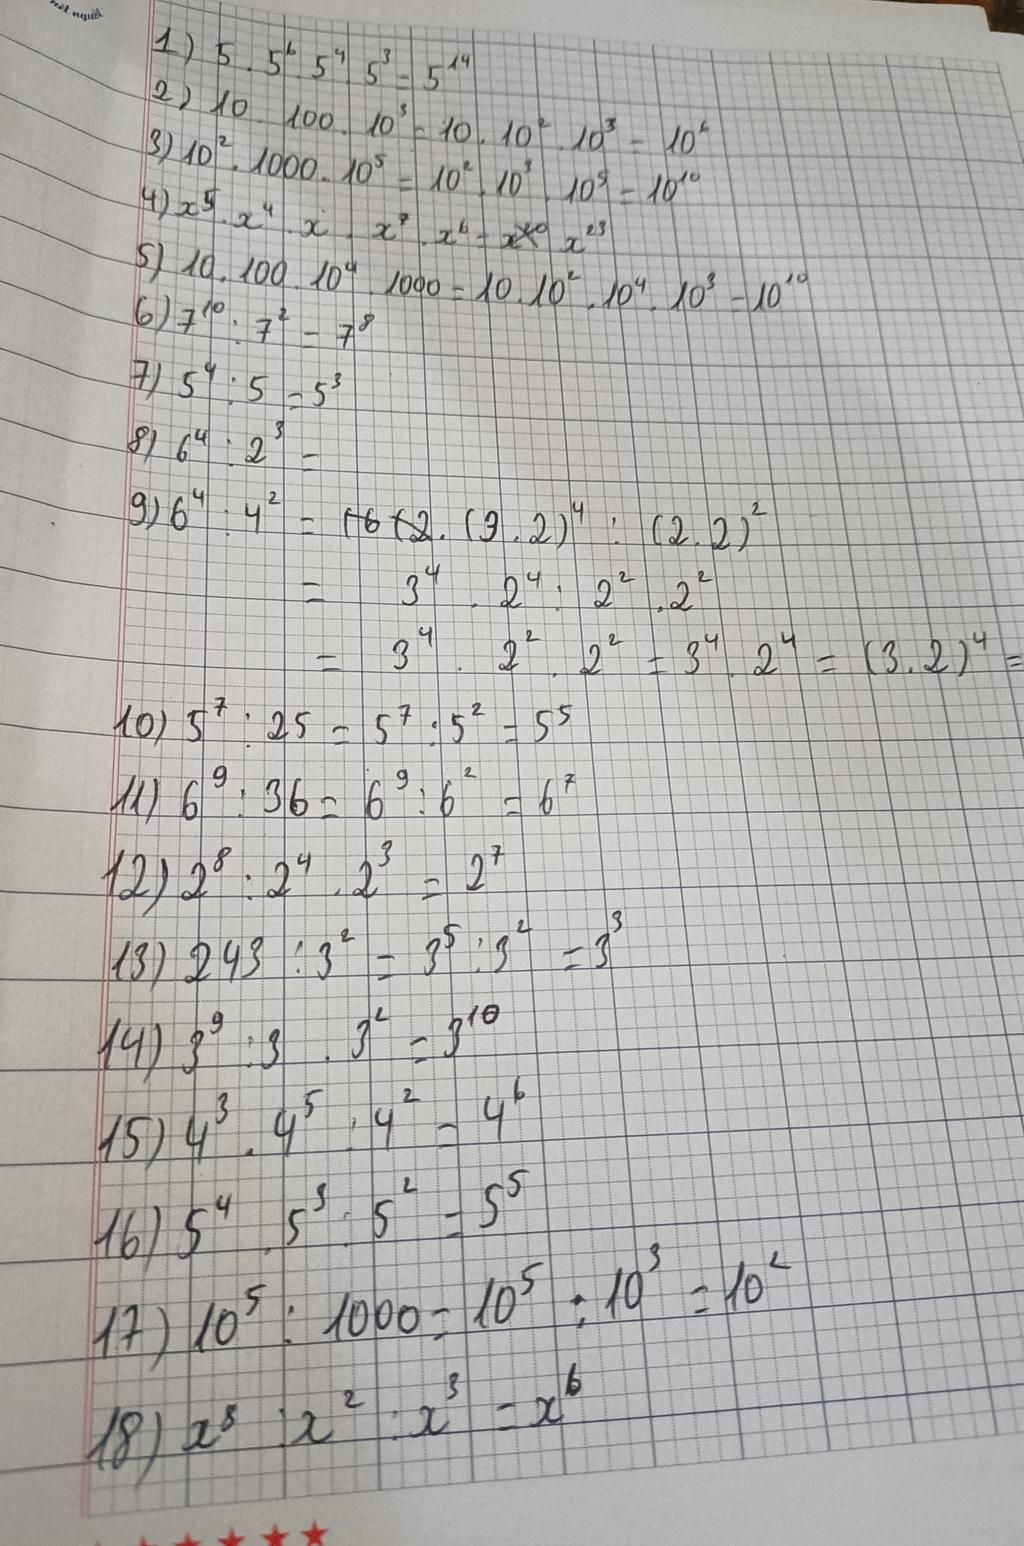 người
1) 5 . 5⁶ . 5⁴ . 5³ = 5¹⁴
2) 10 . 100 . 10³ = 10 . 10² . 10³ = 10⁶
3) 10² . 1000 . 10⁵ = 10² . 10³ . 10⁵ = 10¹⁰
4) x⁵ . x⁴ . x . x⁷ . x⁶ = x²³
5) 10 . 100 . 10⁴ . 1000 = 10 . 10² . 10⁴ . 10³ = 10¹⁰
6) 7¹⁰ : 7² = 7⁸
7) 5⁴ : 5 = 5³
8) 6⁴ : 2³ =
9) 6⁴ : 4² = (3 . 2)⁴ : (2 . 2)²
= 3⁴ . 2⁴ : 2² . 2²
= 3⁴ . 2² . 2² = 3⁴ . 2⁴ = (3 . 2)⁴ =
10) 5⁷ : 25 = 5⁷ : 5² = 5⁵
11) 6⁹ : 36 = 6⁹ : 6² = 6⁷
12) 2⁸ : 2⁴ . 2³ = 2⁷
13) 243 : 3² = 3⁵ : 3² = 3³
14) 3⁹ : 3 . 3² = 3¹⁰
15) 4³ . 4⁵ : 4² = 4⁶
16) 5⁴ . 5³ : 5² = 5⁵
17) 10⁵ : 1000 = 10⁵ : 10³ = 10²
18) x⁵ : x² . x³ = x⁶